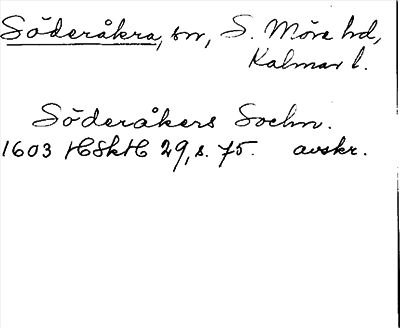 Söderåkra, sn, S. Möre hd,
Kalmar l.
Söderåkers Sochn.
1603 HSkH 29, s. 75. avskr.